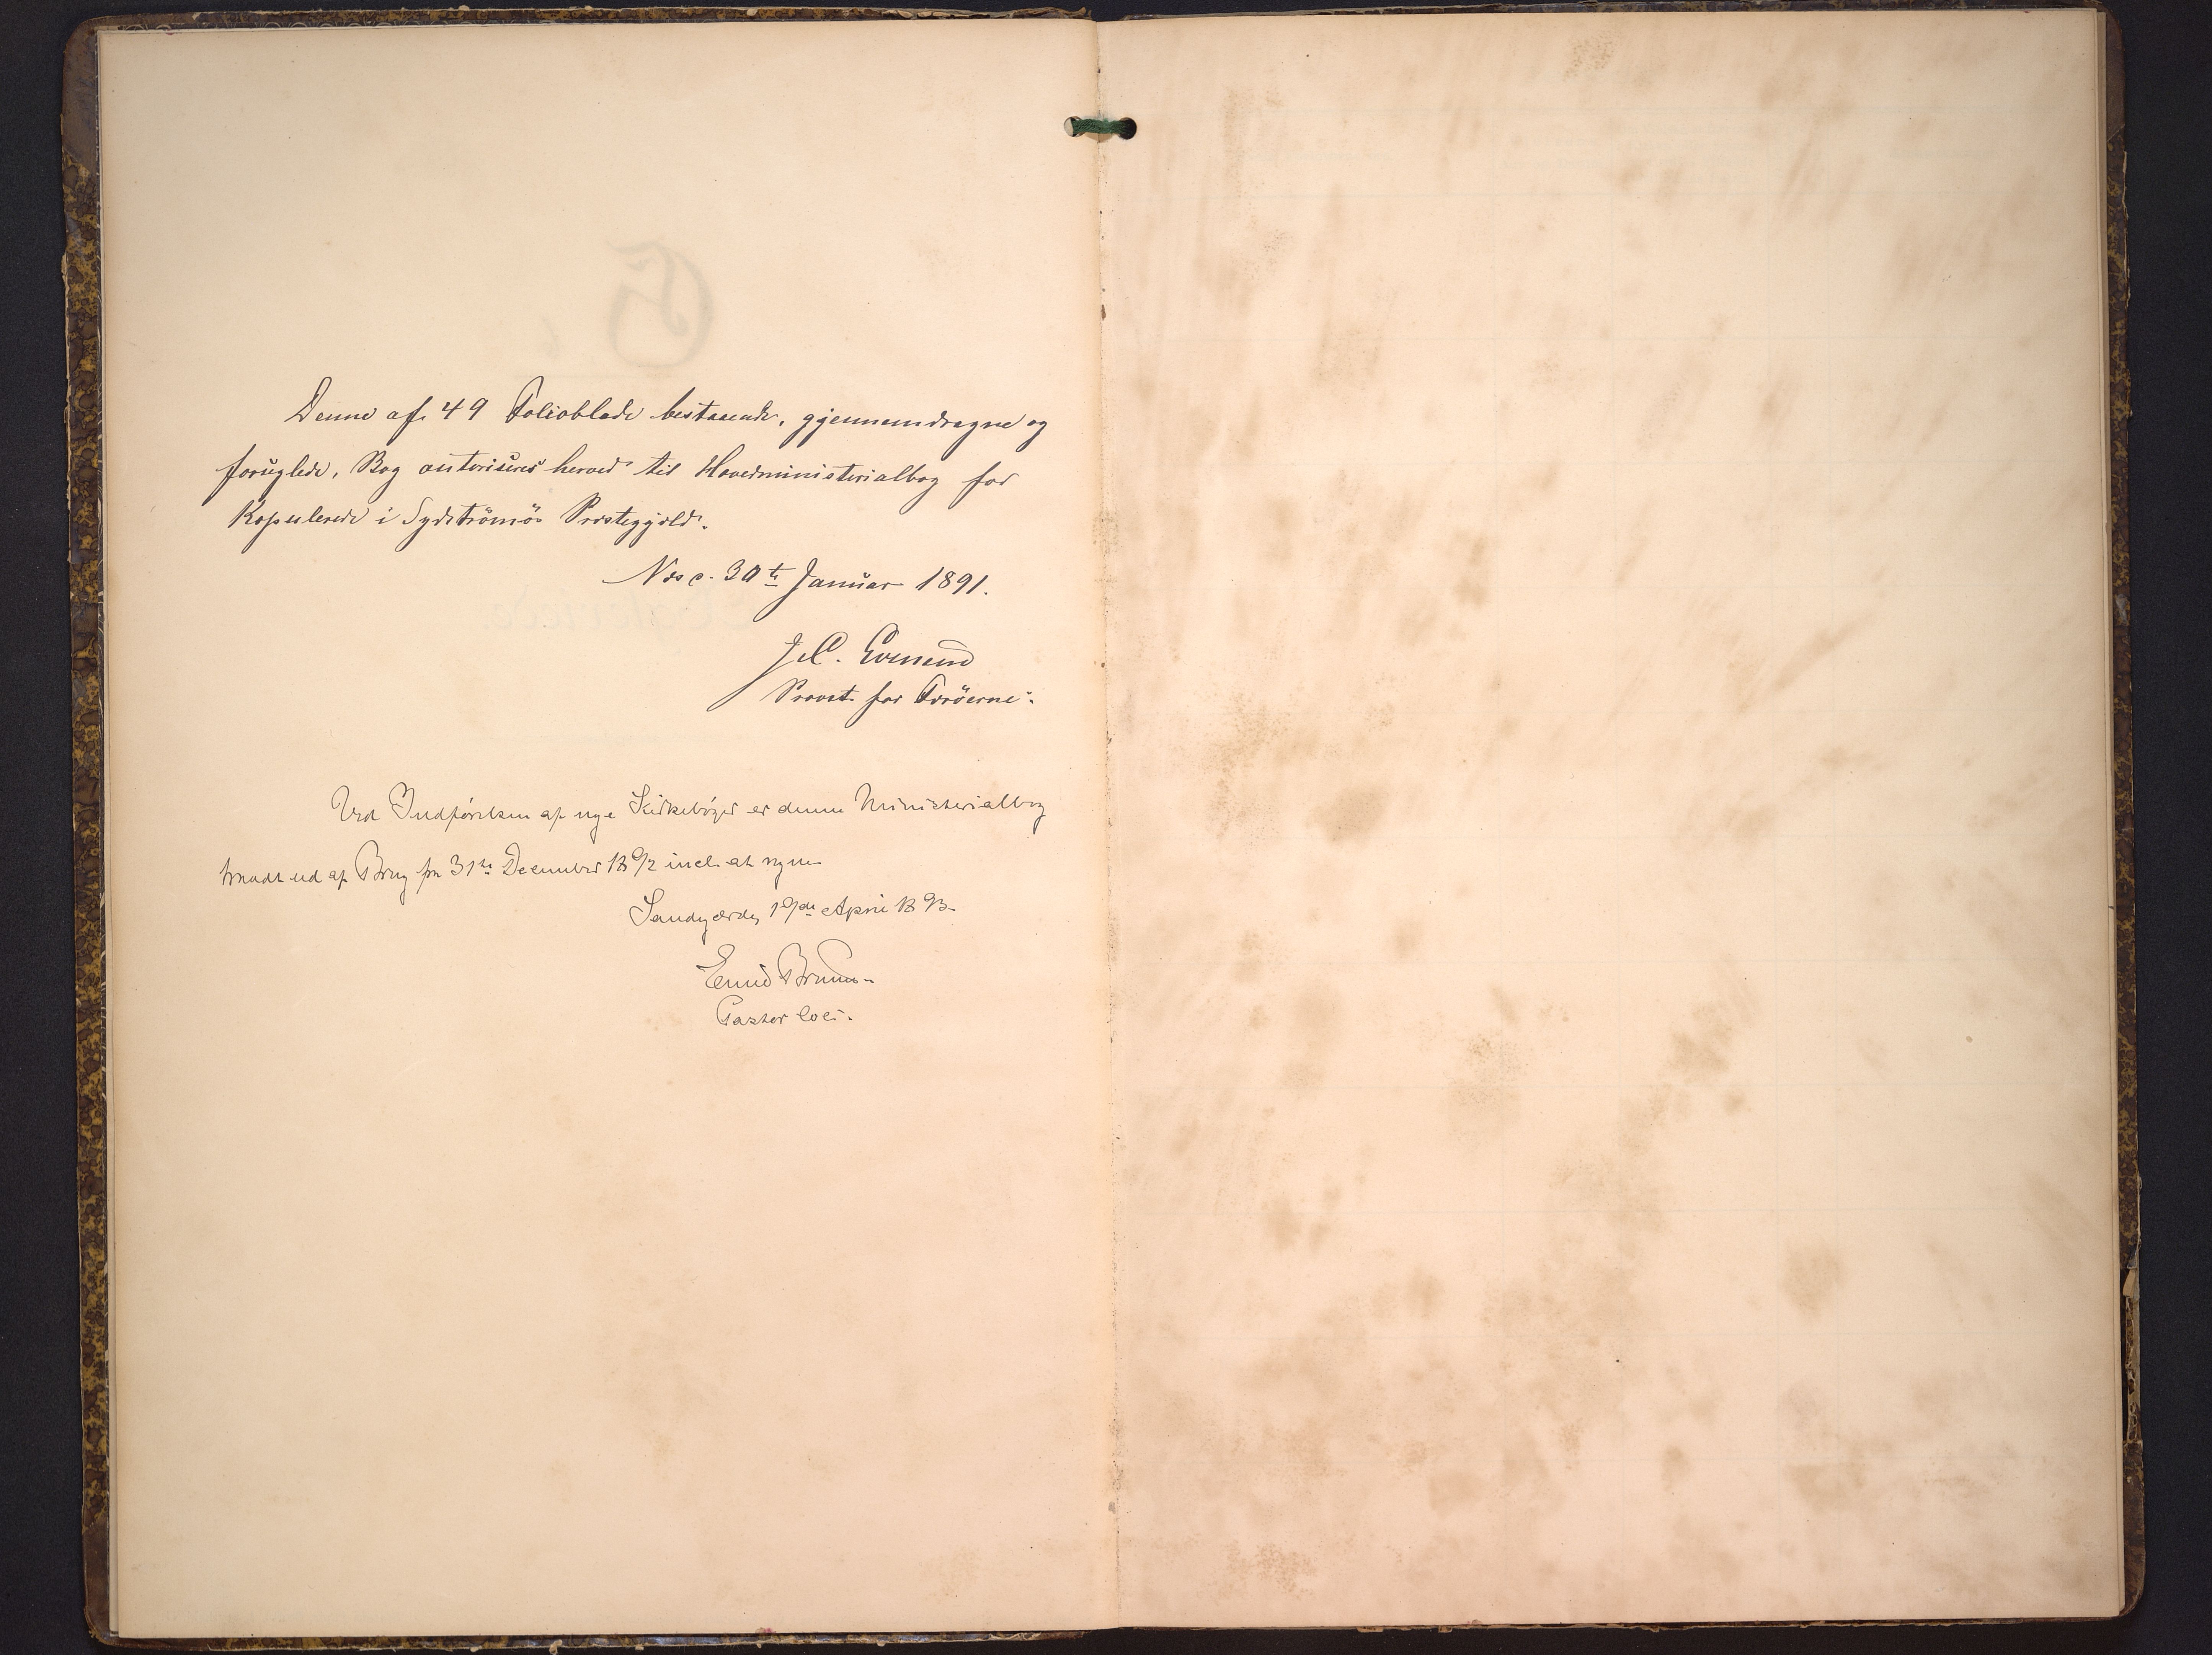 Denne af 49 Folioblade bestaaende, gjennemdragne og
forseglede, Bog autoriseres herved til Hovedministerialbog for
Kopulerede i Sydströmös Præstegjæld.
Næs d. 30te Januar 1891.
J. C. Evensen
Provst for Færöerne.
Ved Indførelsen af nye Kirkebøger er denne Ministerialbog
traadt ud af Brug fra 31te December 1892 incl. at regne
Sandegærde, 19de April 1893.
Emil Bruun
Pastor loci.